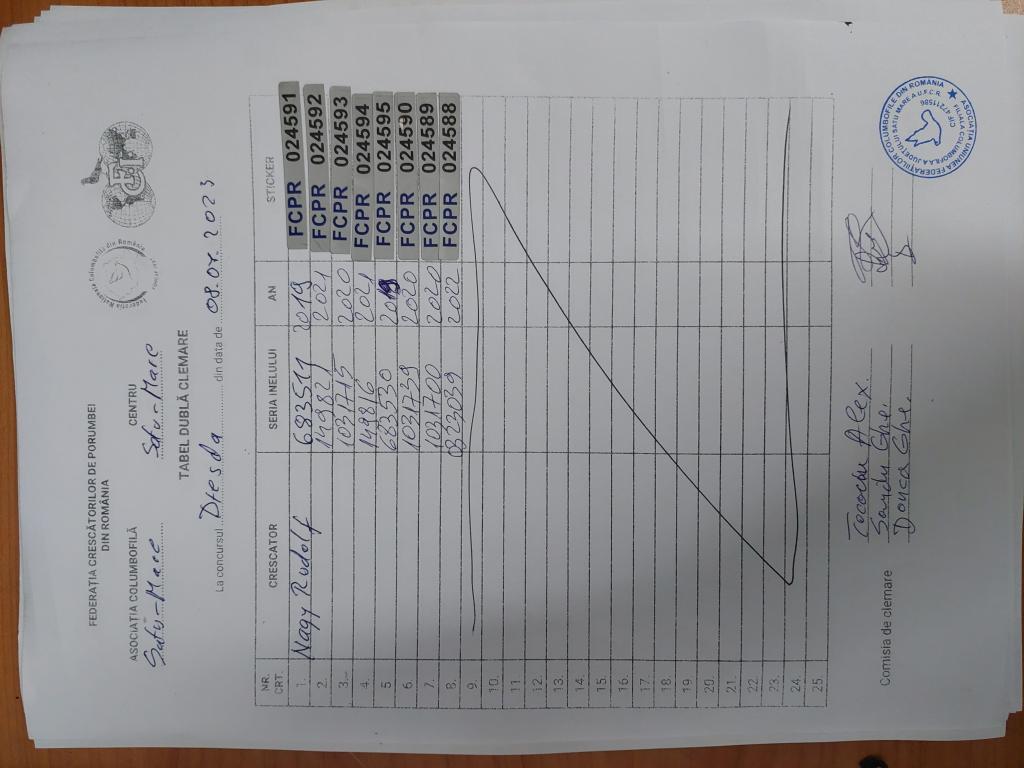 FEDERAȚIA CRESCĂTORILOR DE PORUMBEI
DIN ROMÂNIA
ASOCIAȚIA COLUMBOFILĂ CENTRU
Satu-Mare Satu-Mare
TABEL DUBLĂ CLEMARE
La concursul Dresda din data de 08.07.2023
NR. CRT. CRESCATOR SERIA INELULUI AN STICKER
1. Nagy Rudolf 683511 2019 FCPR 024591
2. 149829 2021 FCPR 024592
3. 1031715 2020 FCPR 024593
4. 149816 2021 FCPR 024594
5 683530 2019 FCPR 024595
6. 1031739 2020 FCPR 024590
7. 1031700 2020 FCPR 024589
8. 2022 FCPR 024588
9.
10.
11
12.
13.
14.
15.
16.
17.
18.
19
20.
21.
22.
23.
24.
25.
Comisia de clemare
Alex.
Sandu Ghe.
Donca Ghe.
ASOCIAȚIA UNIUNEA FEDERAȚIILOR COLUMBOFILE DIN ROMÂNIA
FILIALA COLUMBOFILĂ A JUDEȚULUI SATU MARE A U.F.C.R.
CIF 47211586